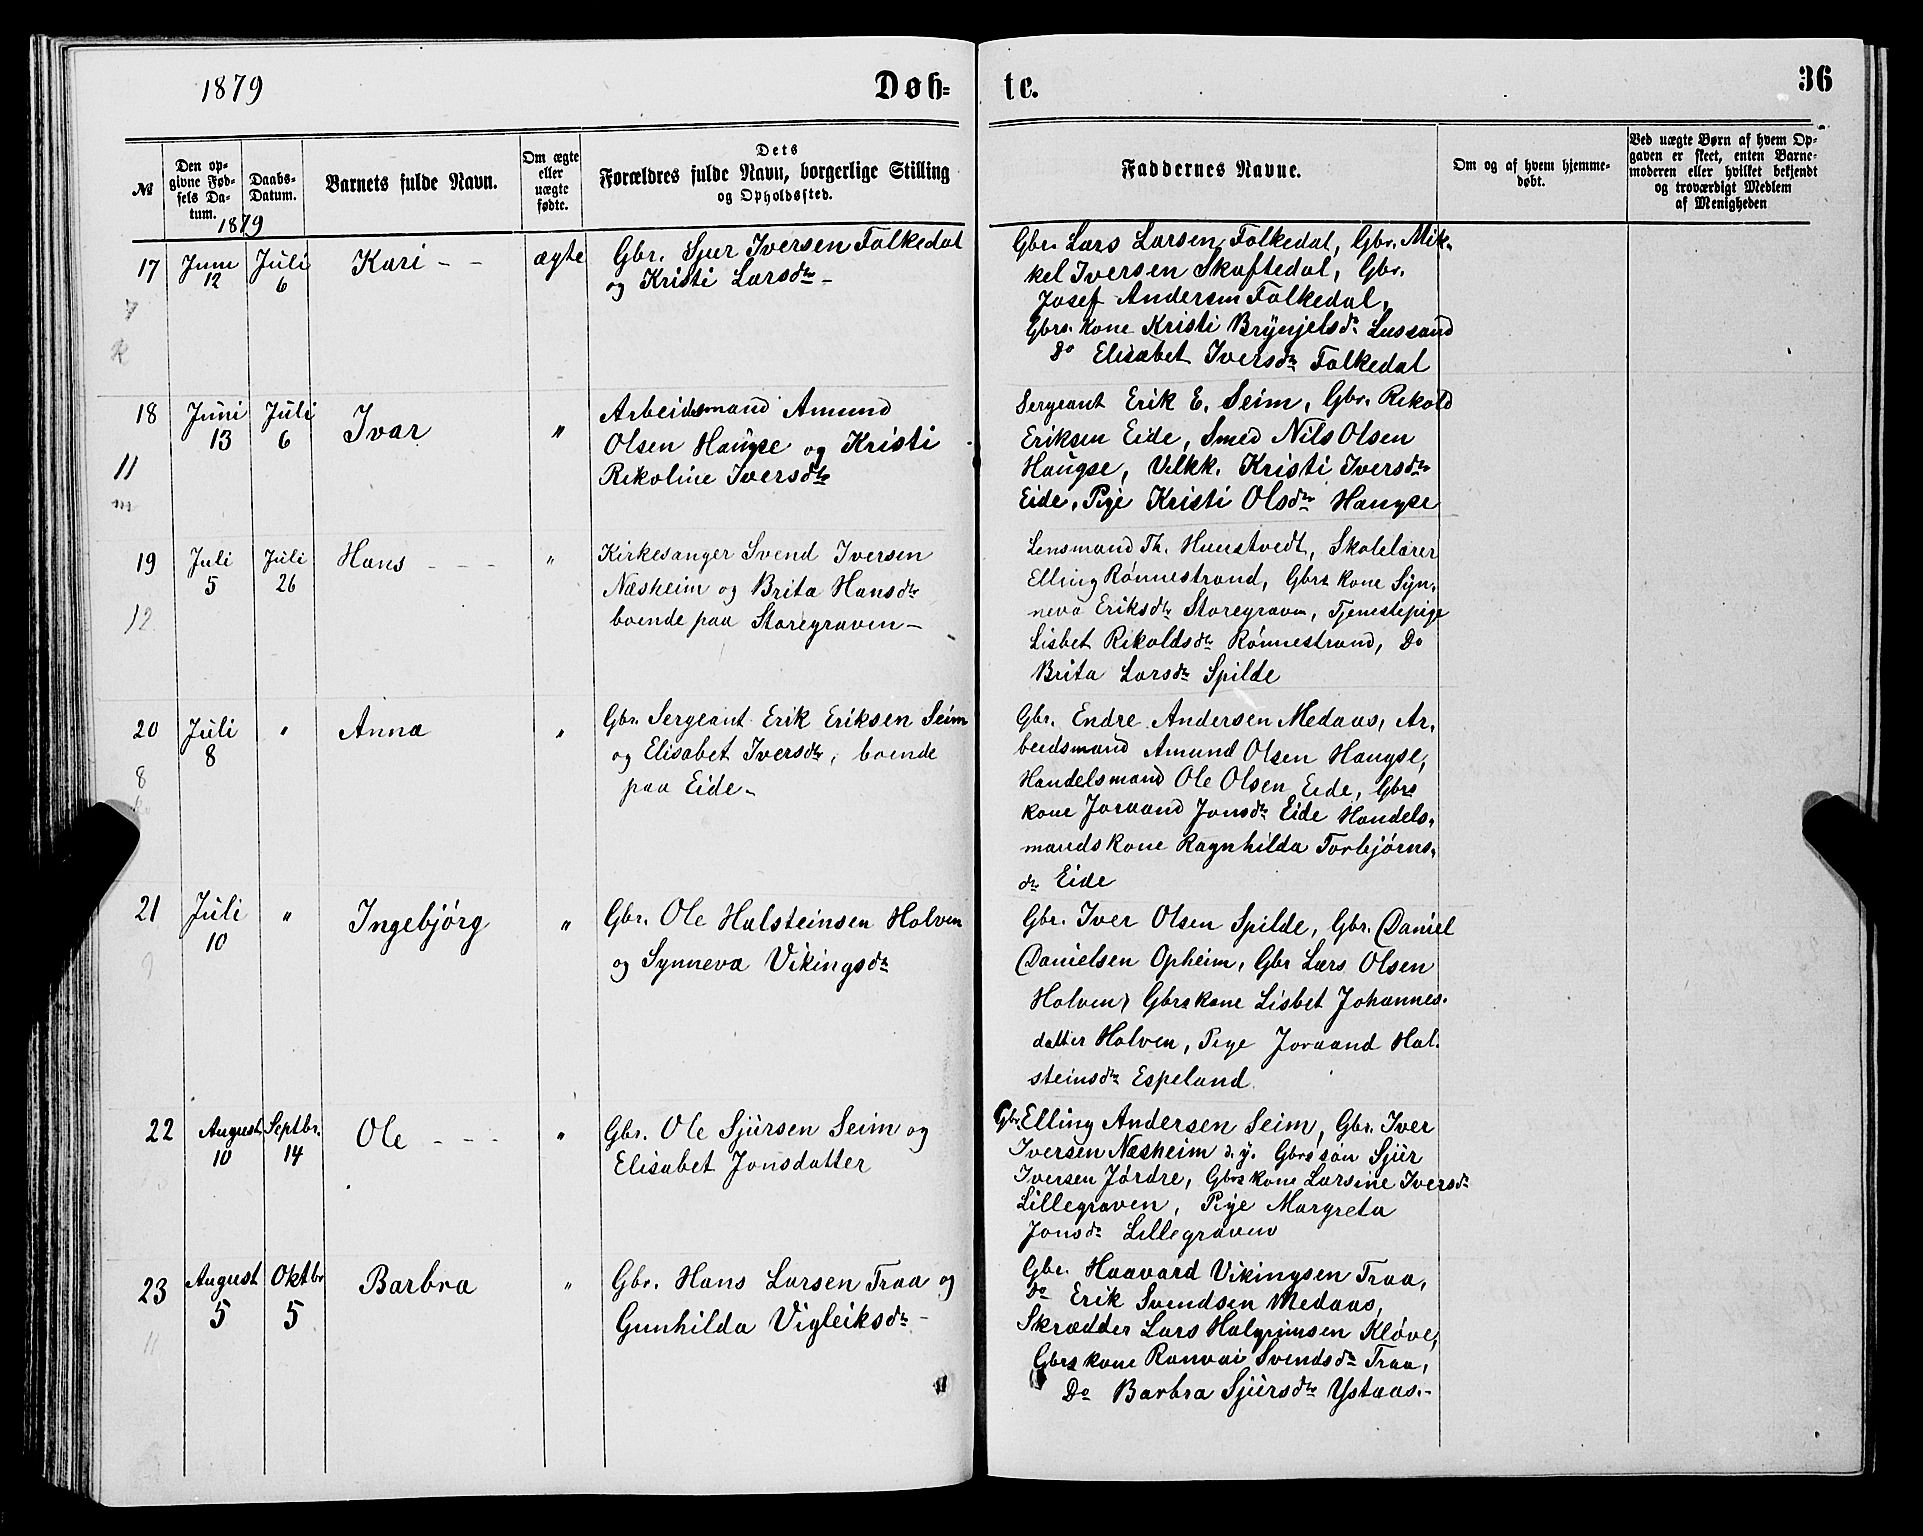 1879
Døb=
te.
36
№
Den op-
givne Fød-
sels Da-
tum.
Daabs-
Datum.
Barnets fulde Navn.
Om ægte
eller
uægte
fødte.
Dets
Forældres fulde Navn, borgerlige Stilling
og Opholdssted.
Faddernes Navne.
Om og af hvem hjemme-
døbt.
Ved uægte Børn af hvem Op-
gaven er skeet, enten Barne-
moderen eller hvilket bekjendt
og troværdigt Medlem
af Menigheden
1879
17
Juni
12
Juli
6
Kari - -
ægte
Gbr. Sjur Iversen Folkedal
og Kristi Larsdtr -
Gbr. Lars Larsen Folkedal, Gbr. Mik-
kel Iversen Skaftedal, Gbr.
Josef Andersen Folkedal,
Gbrs. kone Kristi Brynjelsdr. Lussand
Do Elisabet Iversdtr Folkedal
18
11
m
Juni
13
Juli
6
Ivar
"
Arbeidsmand Amund
Olsen Haugse og Kristi
Rikoline Iversdtr
Sergeant Erik E. Seim, Gbr. Rikold
Eriksen Eide, Smed Nils Olsen
Haugse, Utkk. Kristi Iversdtr
Eide, Pige Kristi Olsdtr Haugse
19
12
Juli
5
Juli
26
Hans - - -
"
Kirkesanger Svend Iversen
Næsheim og Brita Hansdtr
boende paa Storegraven -
Lensmand Th. Hunstvedt, Skolelærer
Elling Rønnestrand, Gbrs kone Syn-
neva Eriksdtr Storegraven, Tjenestepige
Lisbet Rikoldsdtr Rønnestrand, Do
Brita Larsdtr Spilde
20
8
Juli
8
"
Anna
"
Gbr. Sergeant Erik Eriksen Seim
og Elisabet Iversdtr, boende
paa Eide -
Gbr. Endre Andersen Medaas, Ar-
beidsmand Amund Olsen Haugse,
Handelsmand Ole Olsen Eide, Gbrs
kone Joraand Jonsdtr Eide Handels-
mandskone Ragnhilda Torbjørns-
dtr Eide
21
9
Juli
10
"
Ingebjørg
"
Gbr. Ole Halsteinsen Holven
og Synneva Vikingsdtr
Gbr. Iver Olsen Spilde, Gbr. Daniel
Danielsen Opheim, Gbr Lars Olsen
Holven, Gbrskone Lisbet Johannes-
datter Holven, Pige Joraand Hal-
steinsdtr Espeland
22
August
10
Septbr.
14
Ole - - -
"
Gbr. Ole Sjursen Seim og
Elisabet Jonsdatter
Gbr. Elling Andersen Seim, Gbr. Iver
Iversen Næsheim d. y. Gbrs søn Sjur
Iversen Jørdre, Gbrs kone Larsine Iversdtr
Lillegraven, Pige Margreta
Jonsdtr Lillegraven
23
11
August
5
Oktbr
5
Barbra
"
Gbr. Hans Larsen Traa og
Gunhilda Vigleiksdtr -
Gbr. Haavard Vikingsen Traa,
Do Erik Svendsen Medaas,
Skrædder Lars Halgrimsen Kløve,
Gbrs kone Ranvai Svendsdtr Traa,
Do Barbra Sjursdtr Ystaas. -